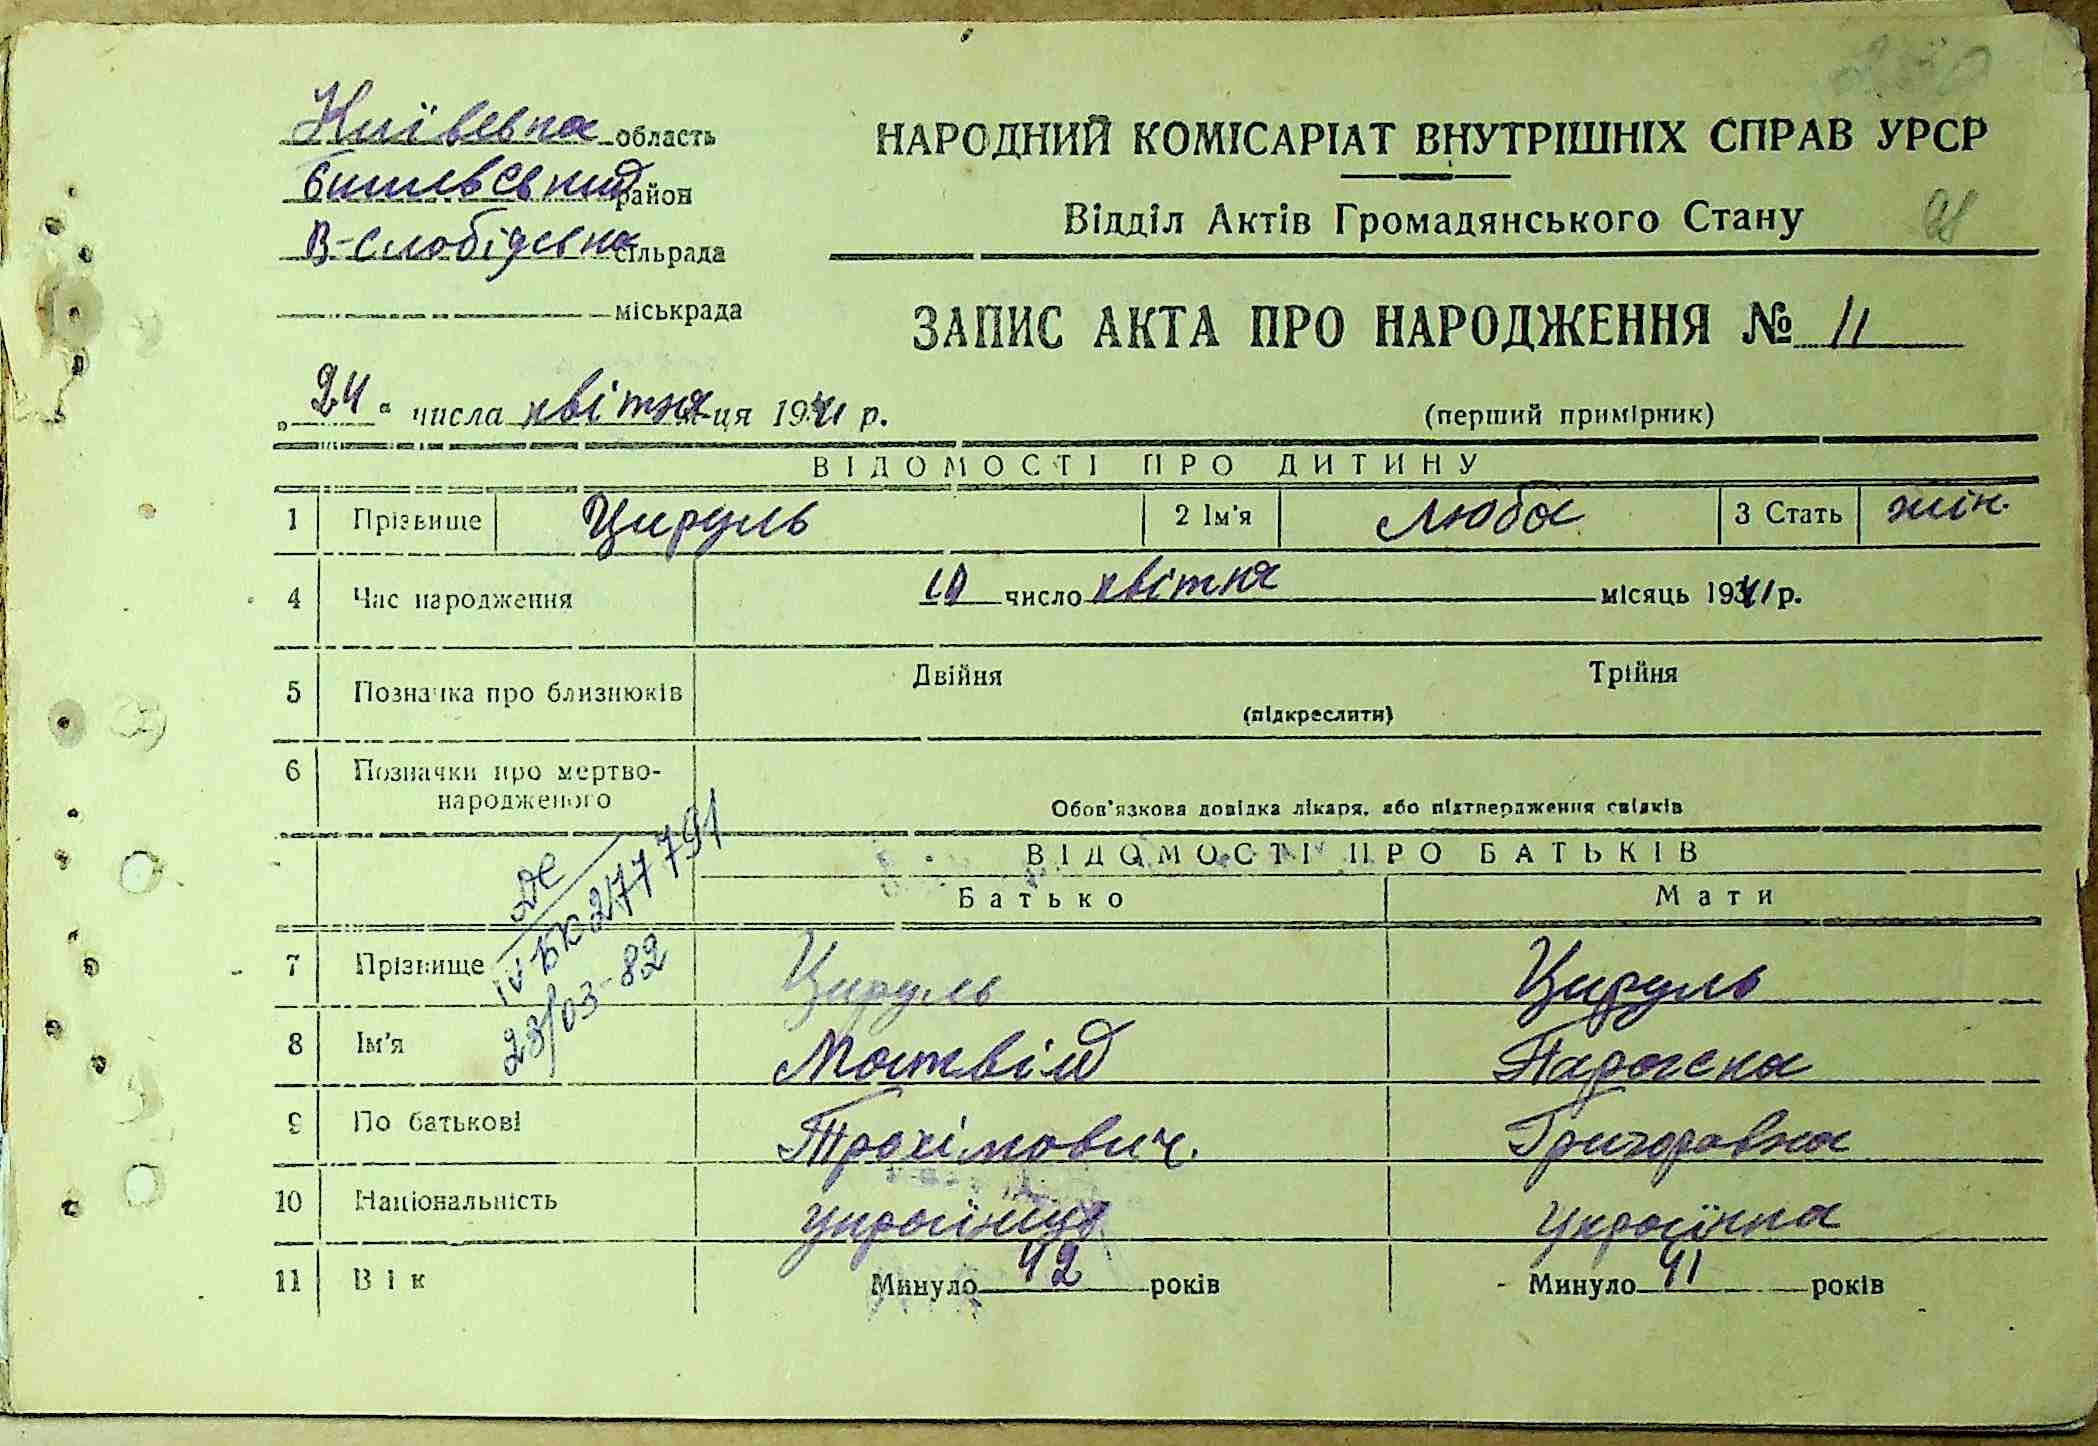 Київська область
НАРОДНИЙ КОМІСАРІАТ ВНУТРІШНІХ СПРАВ УРСР
Бишівський район
Відділ Актів Громадянського Стану
В-Слобідська сільрада
міськрада
ЗАПИС АКТА ПРО НАРОДЖЕННЯ № 11
„24“ числа квітня ця 1941 р.
(перший примірник)
ВІДОМОСТІ ПРО ДИТИНУ
1 Прізвище Цируль 2 Ім'я Люба 3 Стать жін.
4 Час народження 10 число квітня місяць 1941 р.
5 Позначка про близнюків Двійня Трійня
(підкреслити)
6 Позначки про мертво-
народженого
Обов'язкова довідка лікаря, або підтвердження свідків
ВІДОМОСТІ ПРО БАТЬКІВ
Батько Мати
7 Прізвище Цируль Цируль
8 Ім'я Матвій Параска
9 По батькові Трохімович. Григоровна
10 Національність українець українка
11 Вік Минуло 42 років Минуло 41 років
IV БК 277791
23/03-82